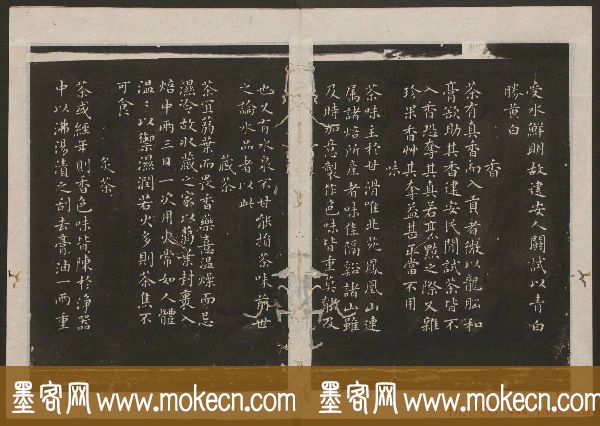 受水鮮明故建安人鬬試以青白
勝黃白
香
茶有真香而入貢者微以龍腦和
膏欲助其香建安民間試茶皆不
入香恐奪其真若烹點之際又雜
珍果香艸其奪益甚正當不用
味
茶味主於甘滑唯北苑鳳凰山連
属諸焙所產者味佳隔谿諸山雖
及時加意製作色味皆重莫能及
也又有水泉不甘能損茶味前世
之論水品者以此
藏茶
茶宜蒻葉而畏香藥喜溫燥而忌
濕冷故收藏之家以蒻葉封裹入
焙中兩三日一次用火常如人體
溫〻以禦濕潤若火多則茶焦不
可食
炙茶
茶或經年則香色味皆陳於淨器
中以沸湯漬之刮去膏油一兩重
墨客网 www.mokecn.com 墨客网 www.mokecn.com